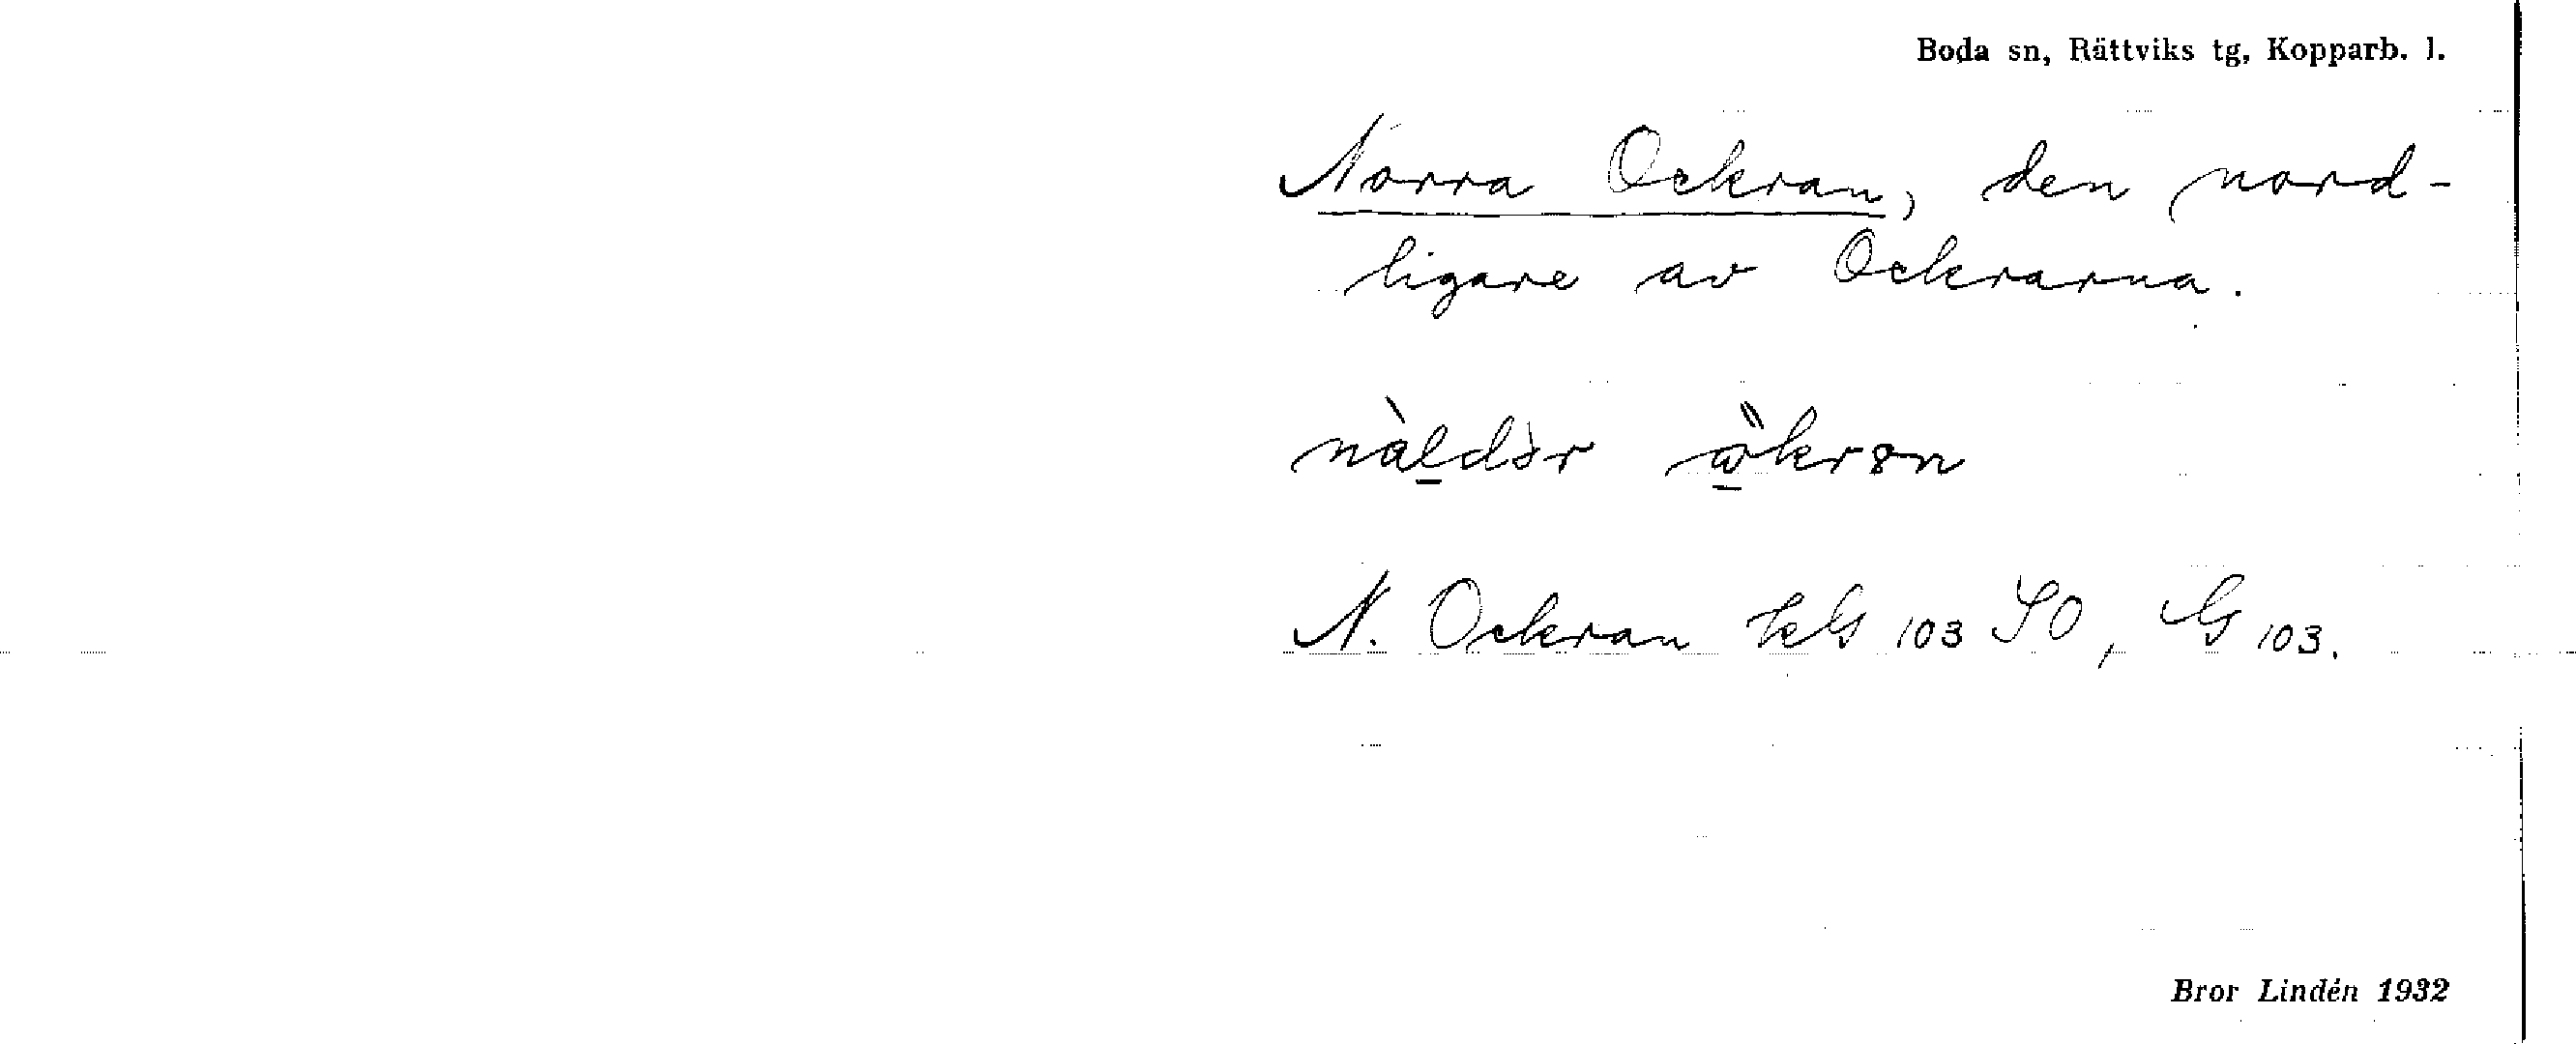 Boda sn, Rättviks tg, Kopparb. l.
Norra Ockran, den nord-
ligare av Ockrarna.
N. Ockran 103 SO, G 103.
Bror Lindén 1932